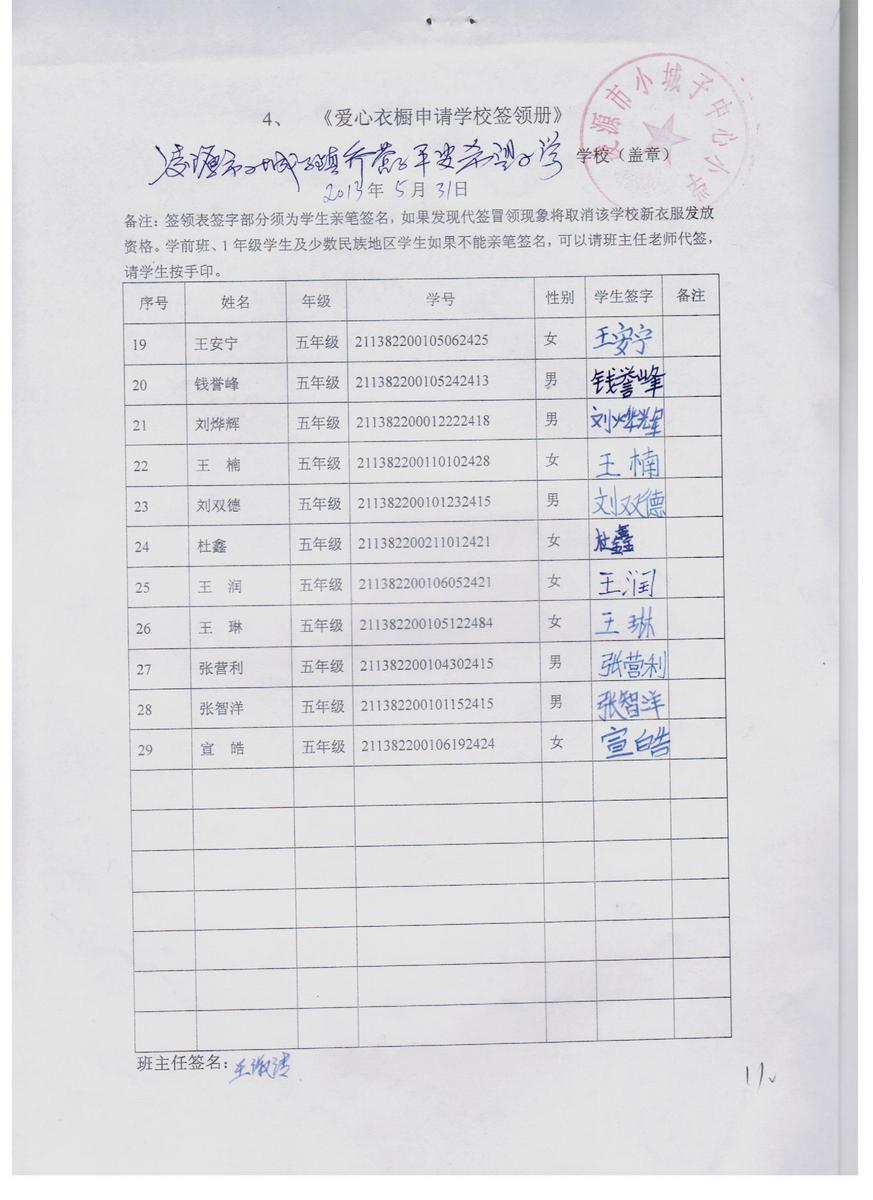 凌源市小城子中心小学
4、 《爱心衣橱申请学校签领册》
凌源市小城子镇 希望小学 学校（盖章）
2013年 5月 31日
备注：签领表签字部分须为学生亲笔签名，如果发现代签冒领现象将取消该学校新衣服发放
资格。学前班、1年级学生及少数民族地区学生如果不能亲笔签名，可以请班主任老师代签，
请学生按手印。
序号 姓名 年级 学号 性别 学生签字 备注
19 王安宁 五年级 211382200105062425 女 王安宁
20 钱誉峰 五年级 211382200105242413 男 钱誉峰
21 刘烨辉 五年级 211382200012222418 男 刘烨辉
22 王 楠 五年级 211382200110102428 女 王 楠
23 刘双德 五年级 211382200101232415 男 刘双德
24 杜鑫 五年级 211382200211012421 女 杜鑫
25 王 润 五年级 211382200106052421 女 王润
26 王 琳 五年级 211382200105122484 女 王琳
27 张营利 五年级 211382200104302415 男 张营利
28 张智洋 五年级 211382200101152415 男 张智洋
29 宣 皓 五年级 211382200106192424 女 宣皓
班主任签名：王淑清
11